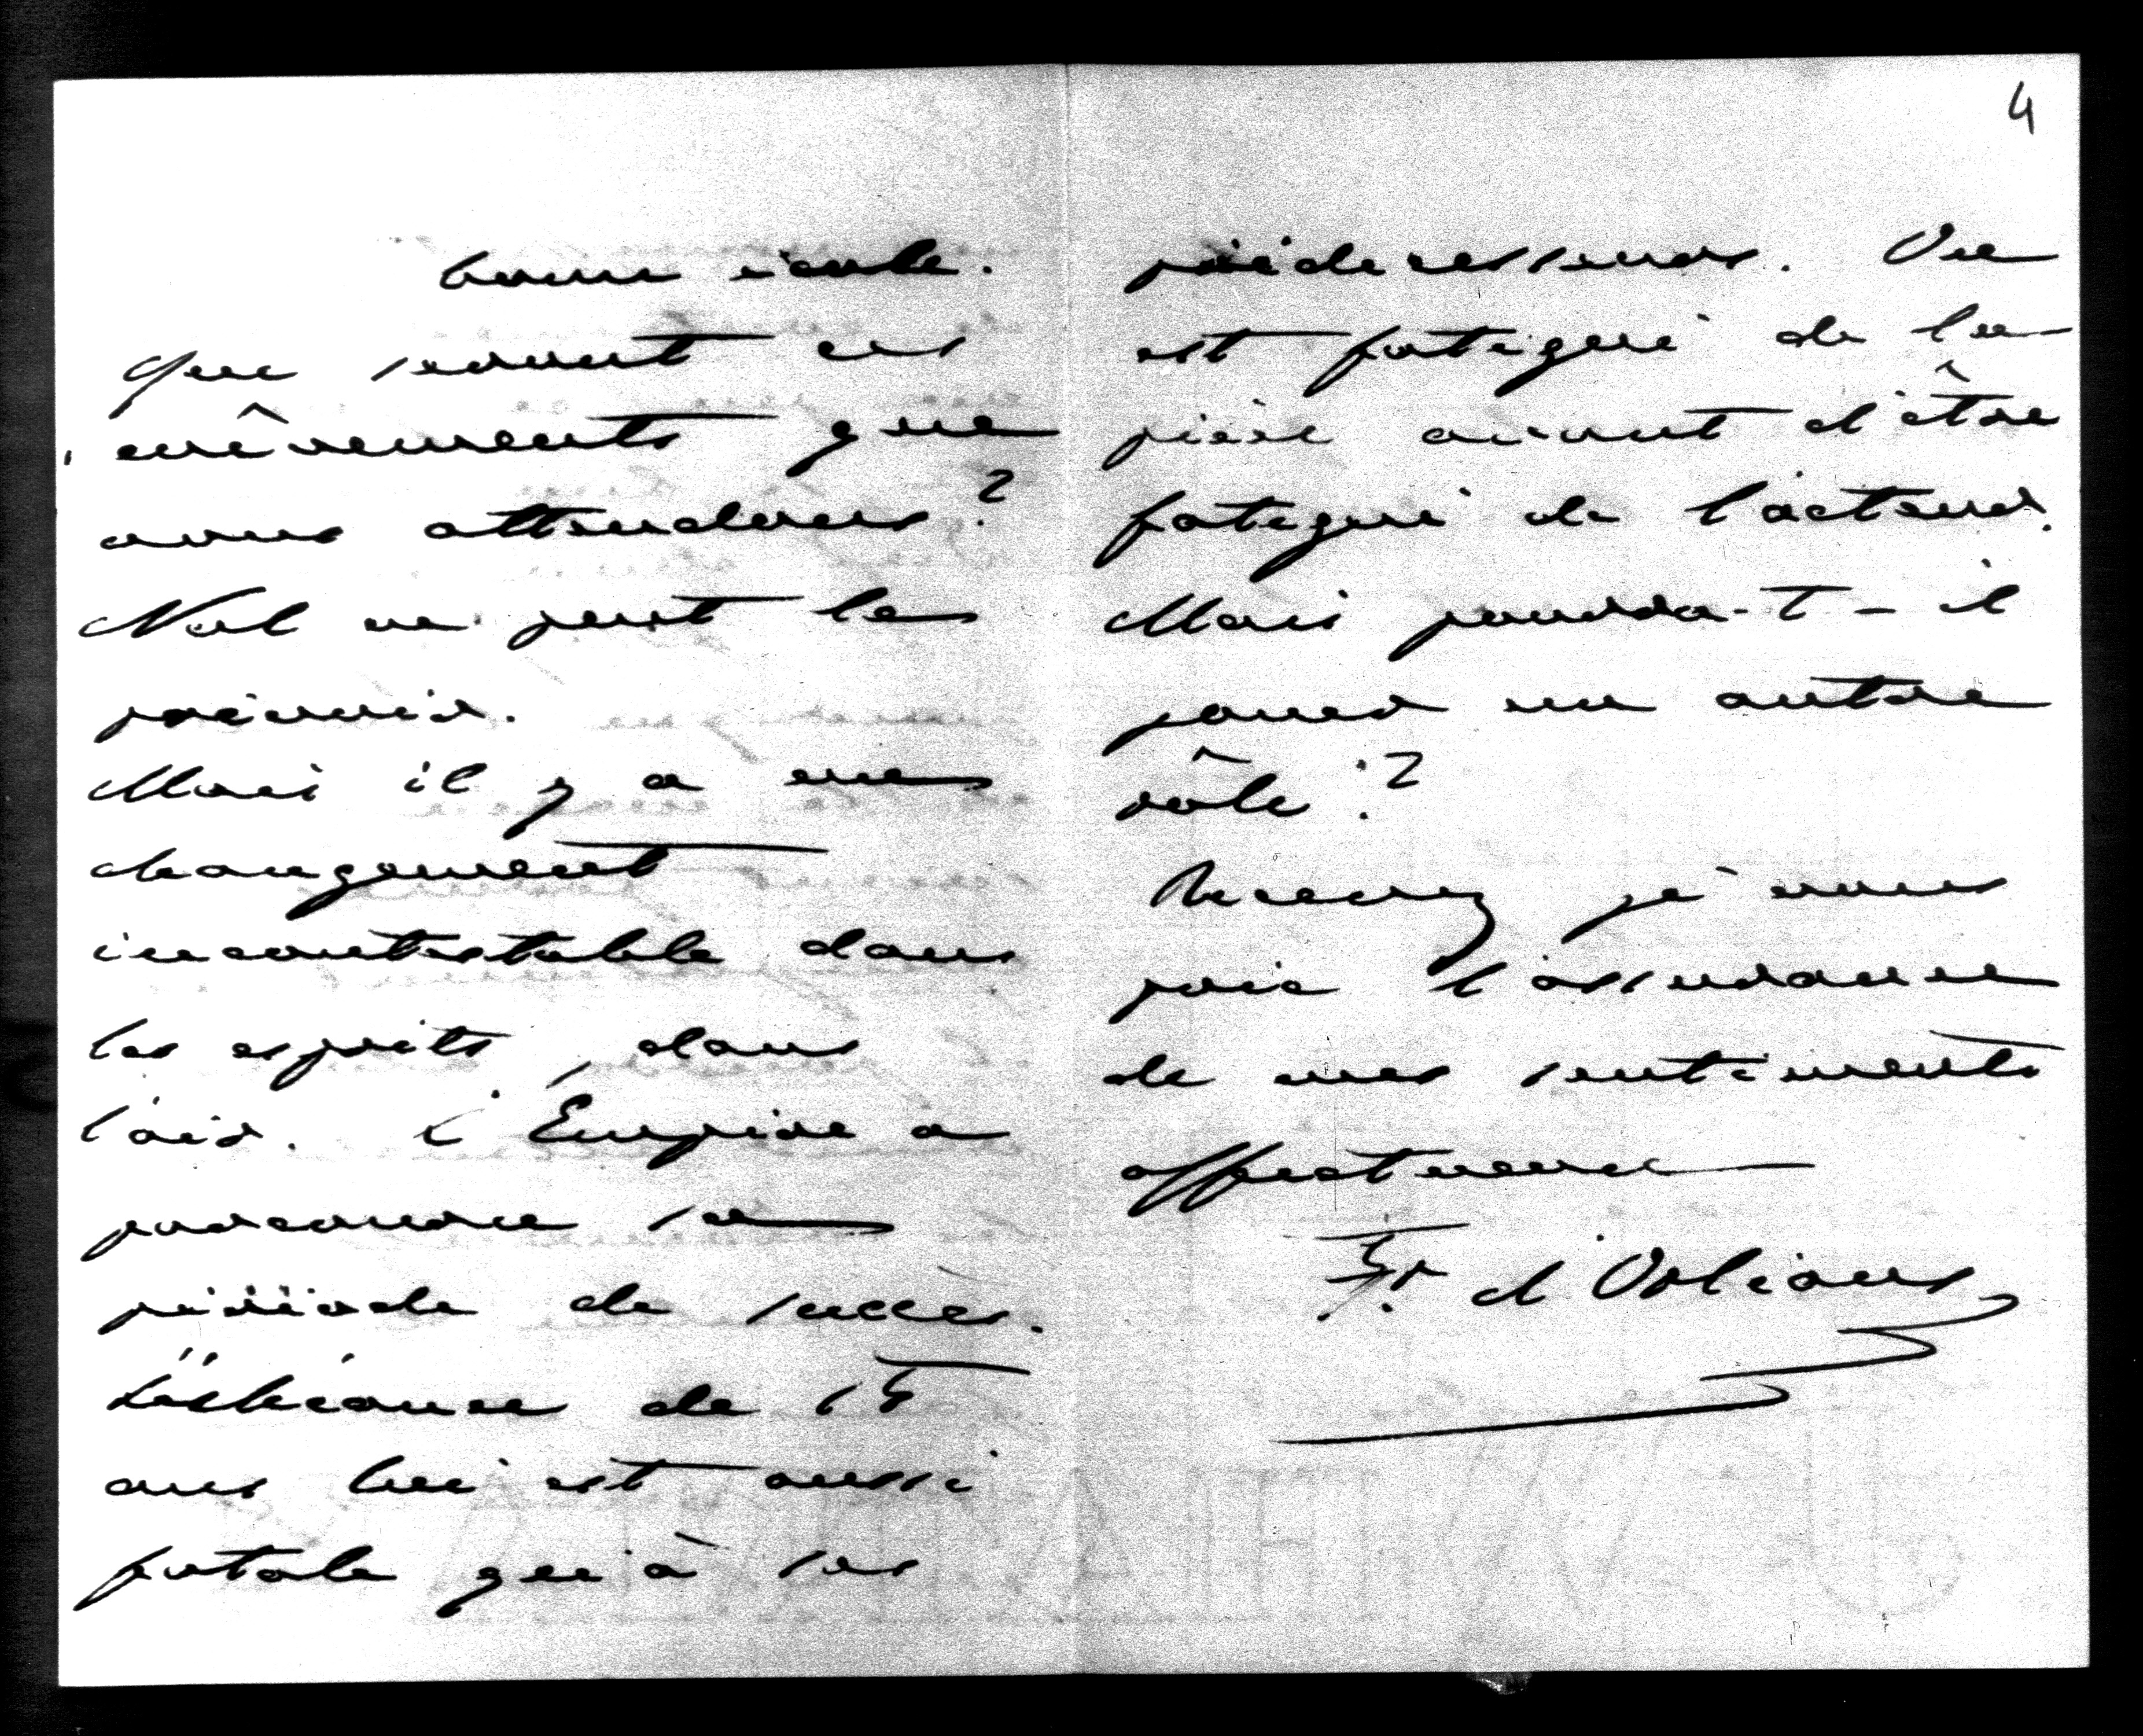 bonne école.
Que seront ces
évênements que
nous attendons ?
Nul ne peut les
prévoir.
Mais il y a un
changement
incontestable dans
les esprits, dans
l'air. L'Empire a
parcouru sa
période de succès.
L'échéance de 15
ans lui est aussi
fatale qu'à ses
4
prédécesseurs. On
est fatigué de la
pièce avant d'être
fatigué de l'acteur.
Mais pourra-t-il
jouer un autre
rôle ?
Recevez je vous
prie l'assurance
de mes sentiments
affectueux
Fr. d'Orléans